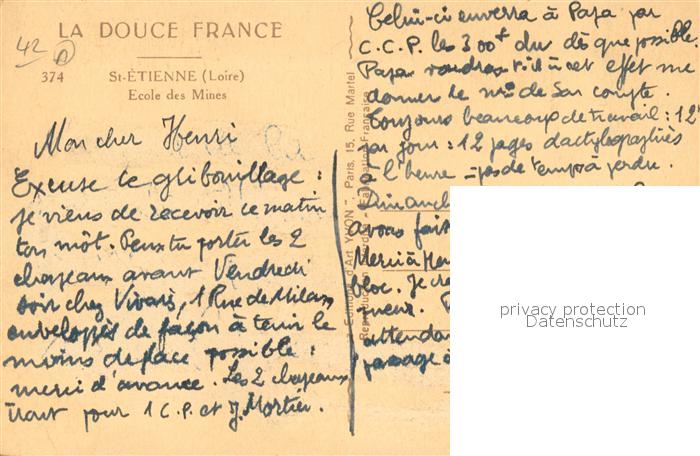 LA DOUCE FRANCE
42
374 St-ÉTIENNE (Loire)
Ecole des Mines
Mon cher Henri
Excuse ce gribouillage :
je viens de recevoir ce matin
ton mot. Peux-tu porter les 2
chapeaux avant Vendredi
soir chez Vivaris, 1 Rue de Milan
enveloppés de façon à tenir le
moins de place possible :
merci d'avance. Les 2 chapeaux
iront pour 1 C.P. et J. Mortier.
Editions d'Art YVON - Paris, 15, Rue Martel
Fabrication Française
Celui-ci enverra à Papa par
C.C.P. les 300f du dès que possible
Papa voudras à cet effet me
donner le no de son compte.
Toujours beaucoup de travail : 12
par jour : 12 pages dactylographiées
à l'heure - pas de temps à perdre.
Dimanch
avons fait
Merci à Hen
bloc. Je
attendan
passage à
privacy protection
Datenschutz